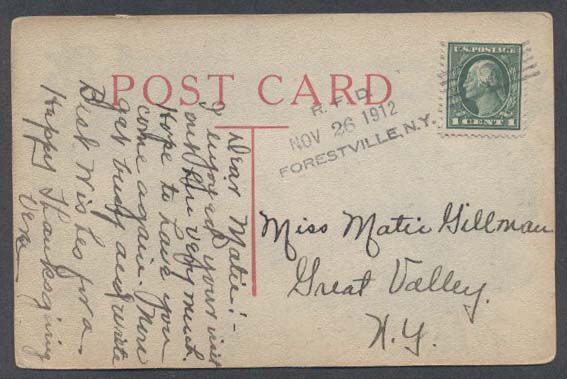 POST CARD
U.S. POSTAGE
1 CENT 1
R.F.D.
NOV 26 1912
FORESTVILLE, N.Y.
Dear Matie:-
I enjoyed your visit
out here very much.
Hope to have you
come again. Now
get busy and write
Best Wishes for a
Happy Thanksgiving
Vera
Miss Matie Gillman
Great Valley.
N.Y.